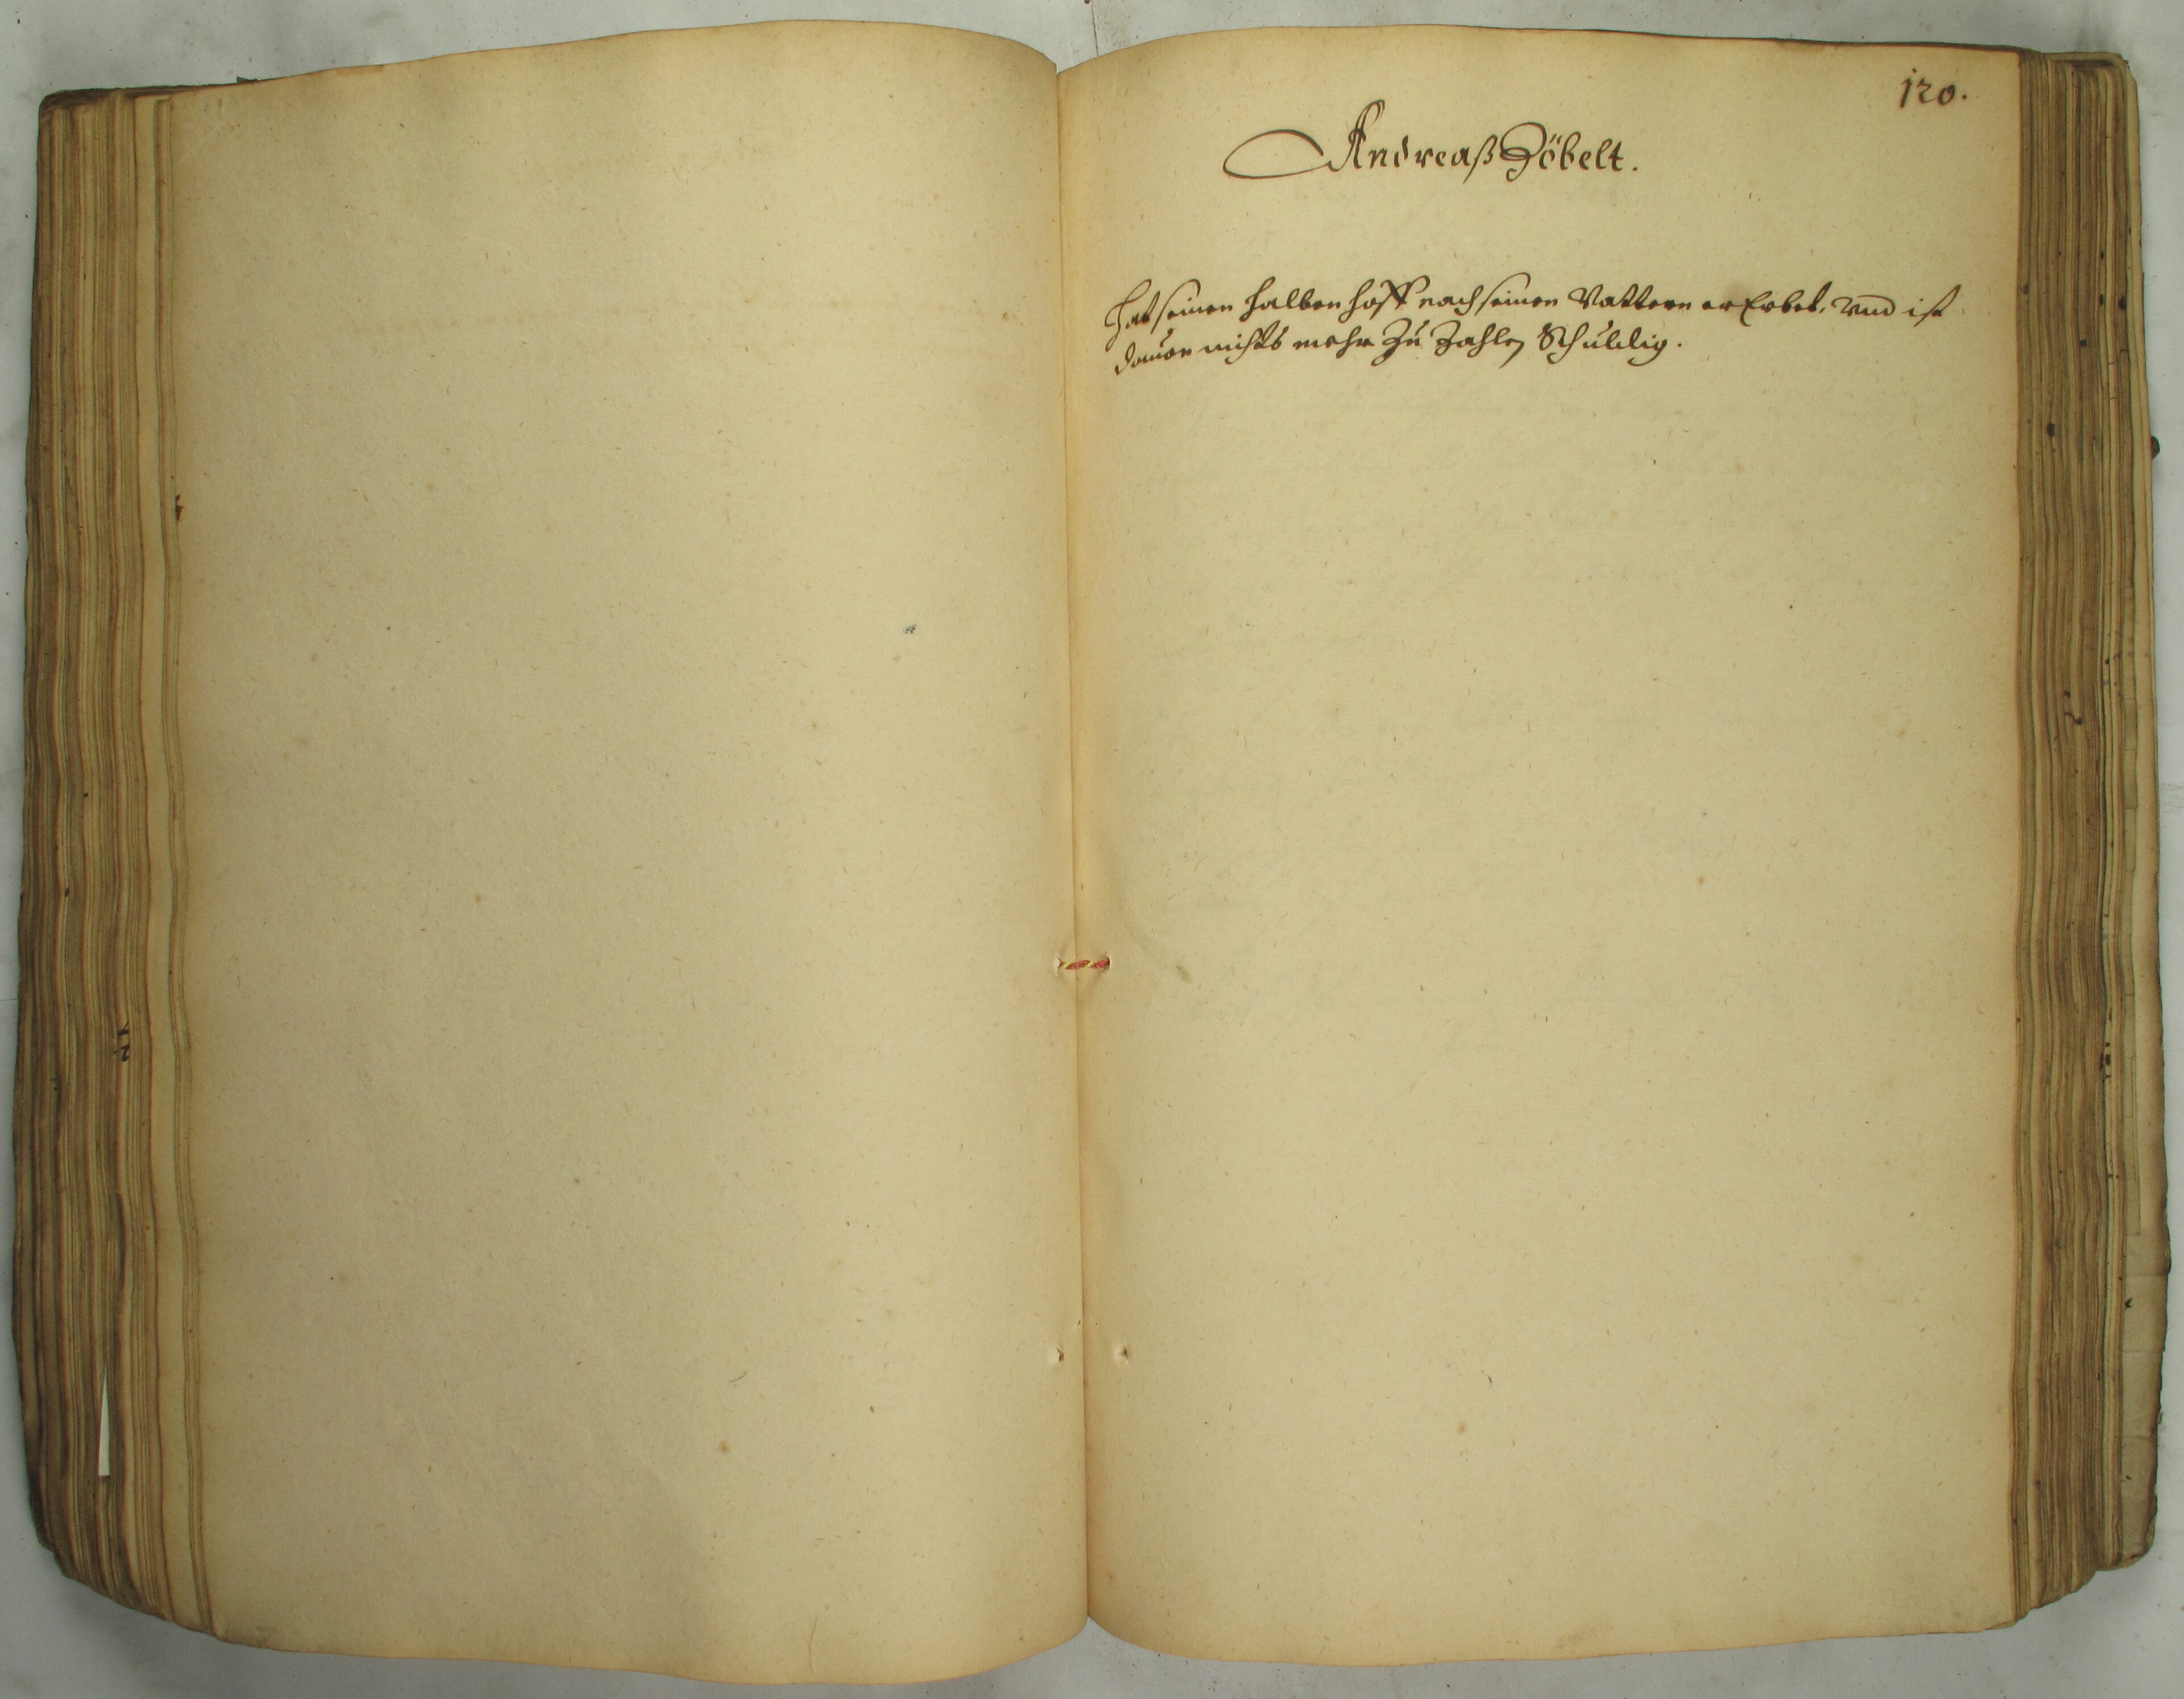 120.
Andreaß Zöbelt.
Hat seinen halben hoff nach seinen Vattern er Erbet, vnd ist
dauon nichts mehr Zu Zahlen Schuldig.